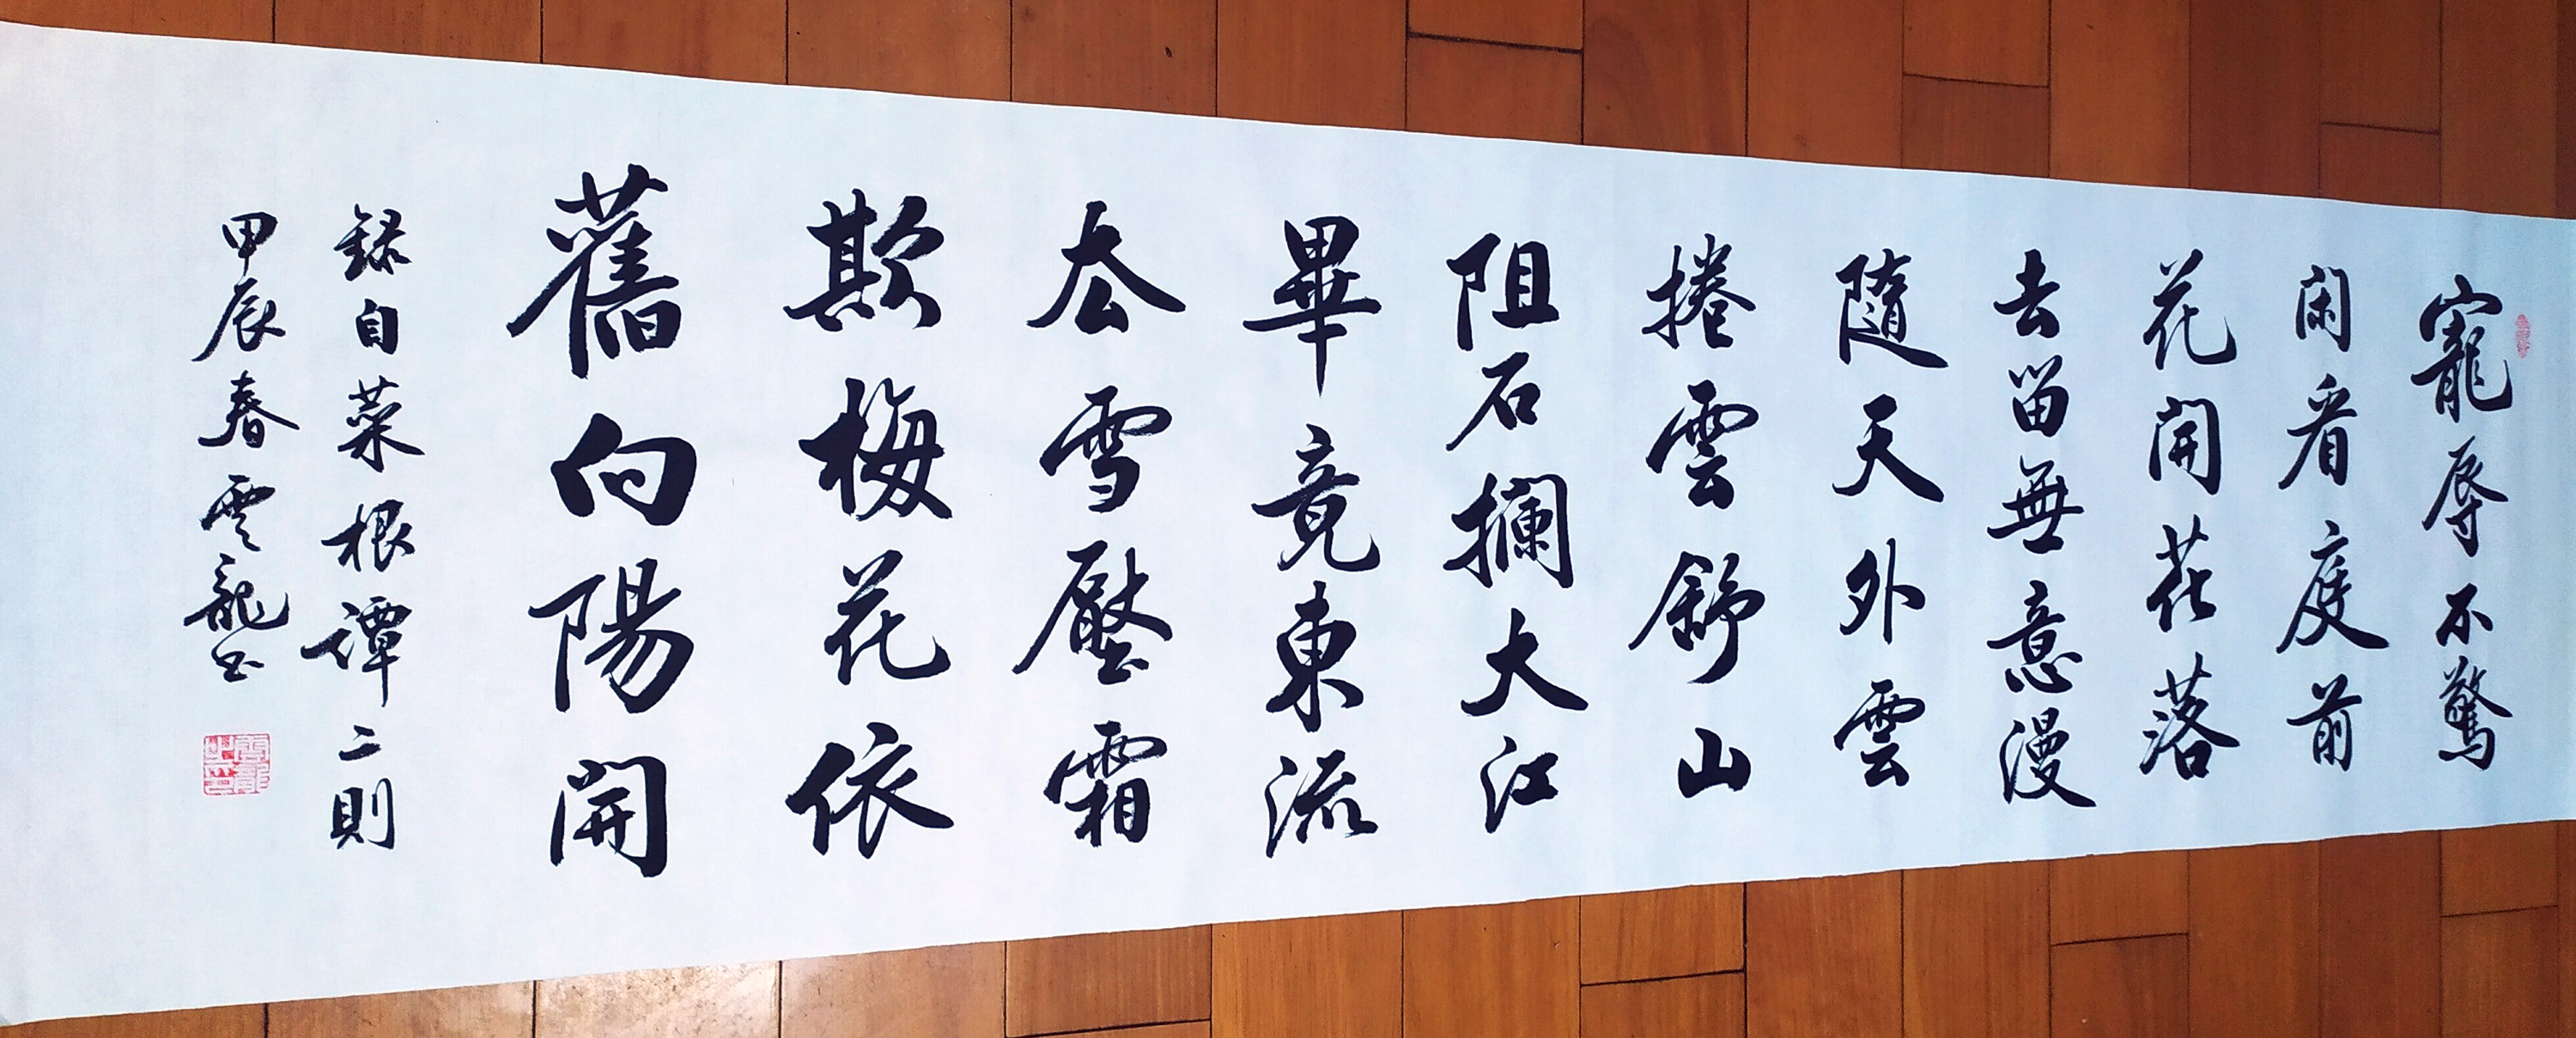 寵辱不驚
閑看庭前
花開花落
去留無意漫
隨天外雲
捲雲舒山
阻石攔大江
畢竟東流
去雪壓霜
欺梅花依
舊向陽開
録自菜根譚二則
甲辰春雲龍书
雲龍之印